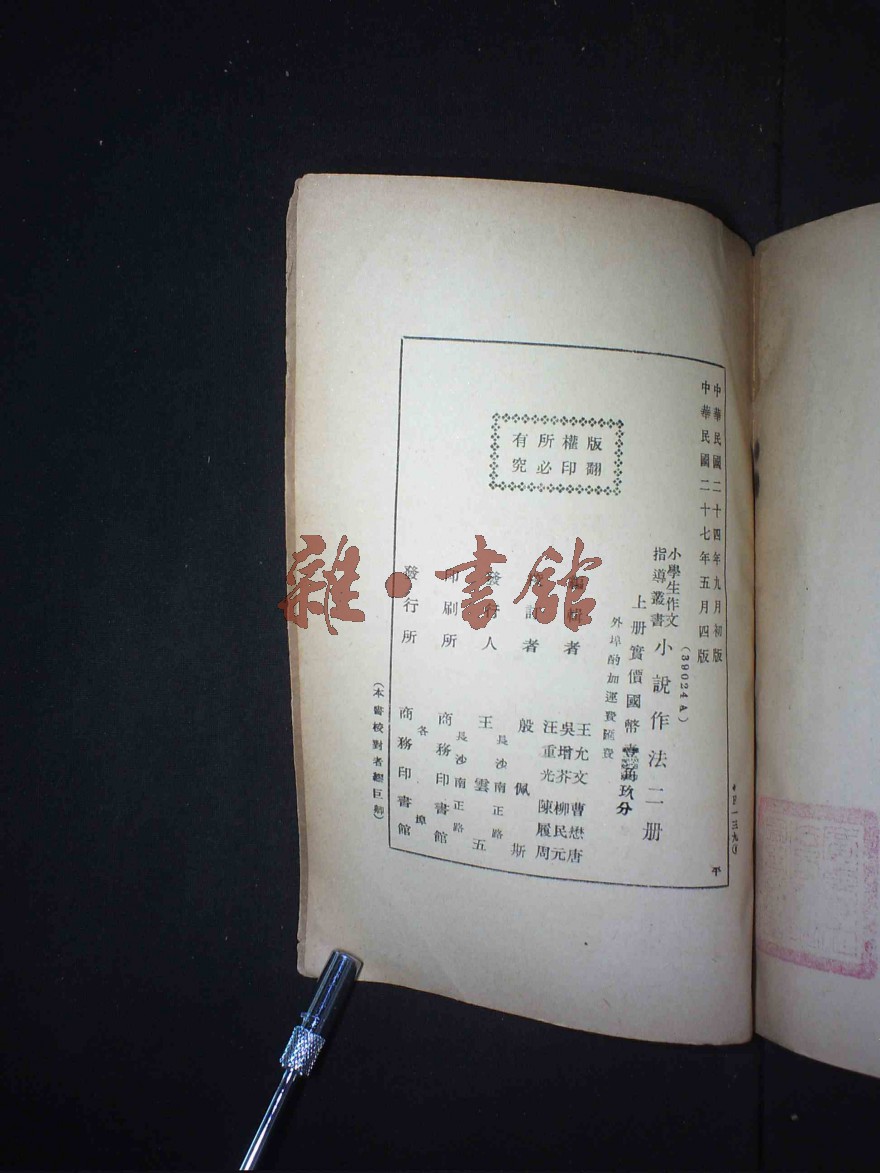 中華民國二十四年九月初版
中華民國二十七年五月四版
(39024A)
小學生作文
指導叢書
小說作法二册
上册實價國幣玖分
外埠酌加運費匯費
版權所有
翻印必究
編輯者
王允文 曹懋唐
吳增芥 柳民元
汪重光 陳履周
校訂者
殷佩斯
發行人
王雲五
長沙南正路
印刷所
商務印書館
長沙南正路
發行所
商務印書館
各埠
平
雜·書館